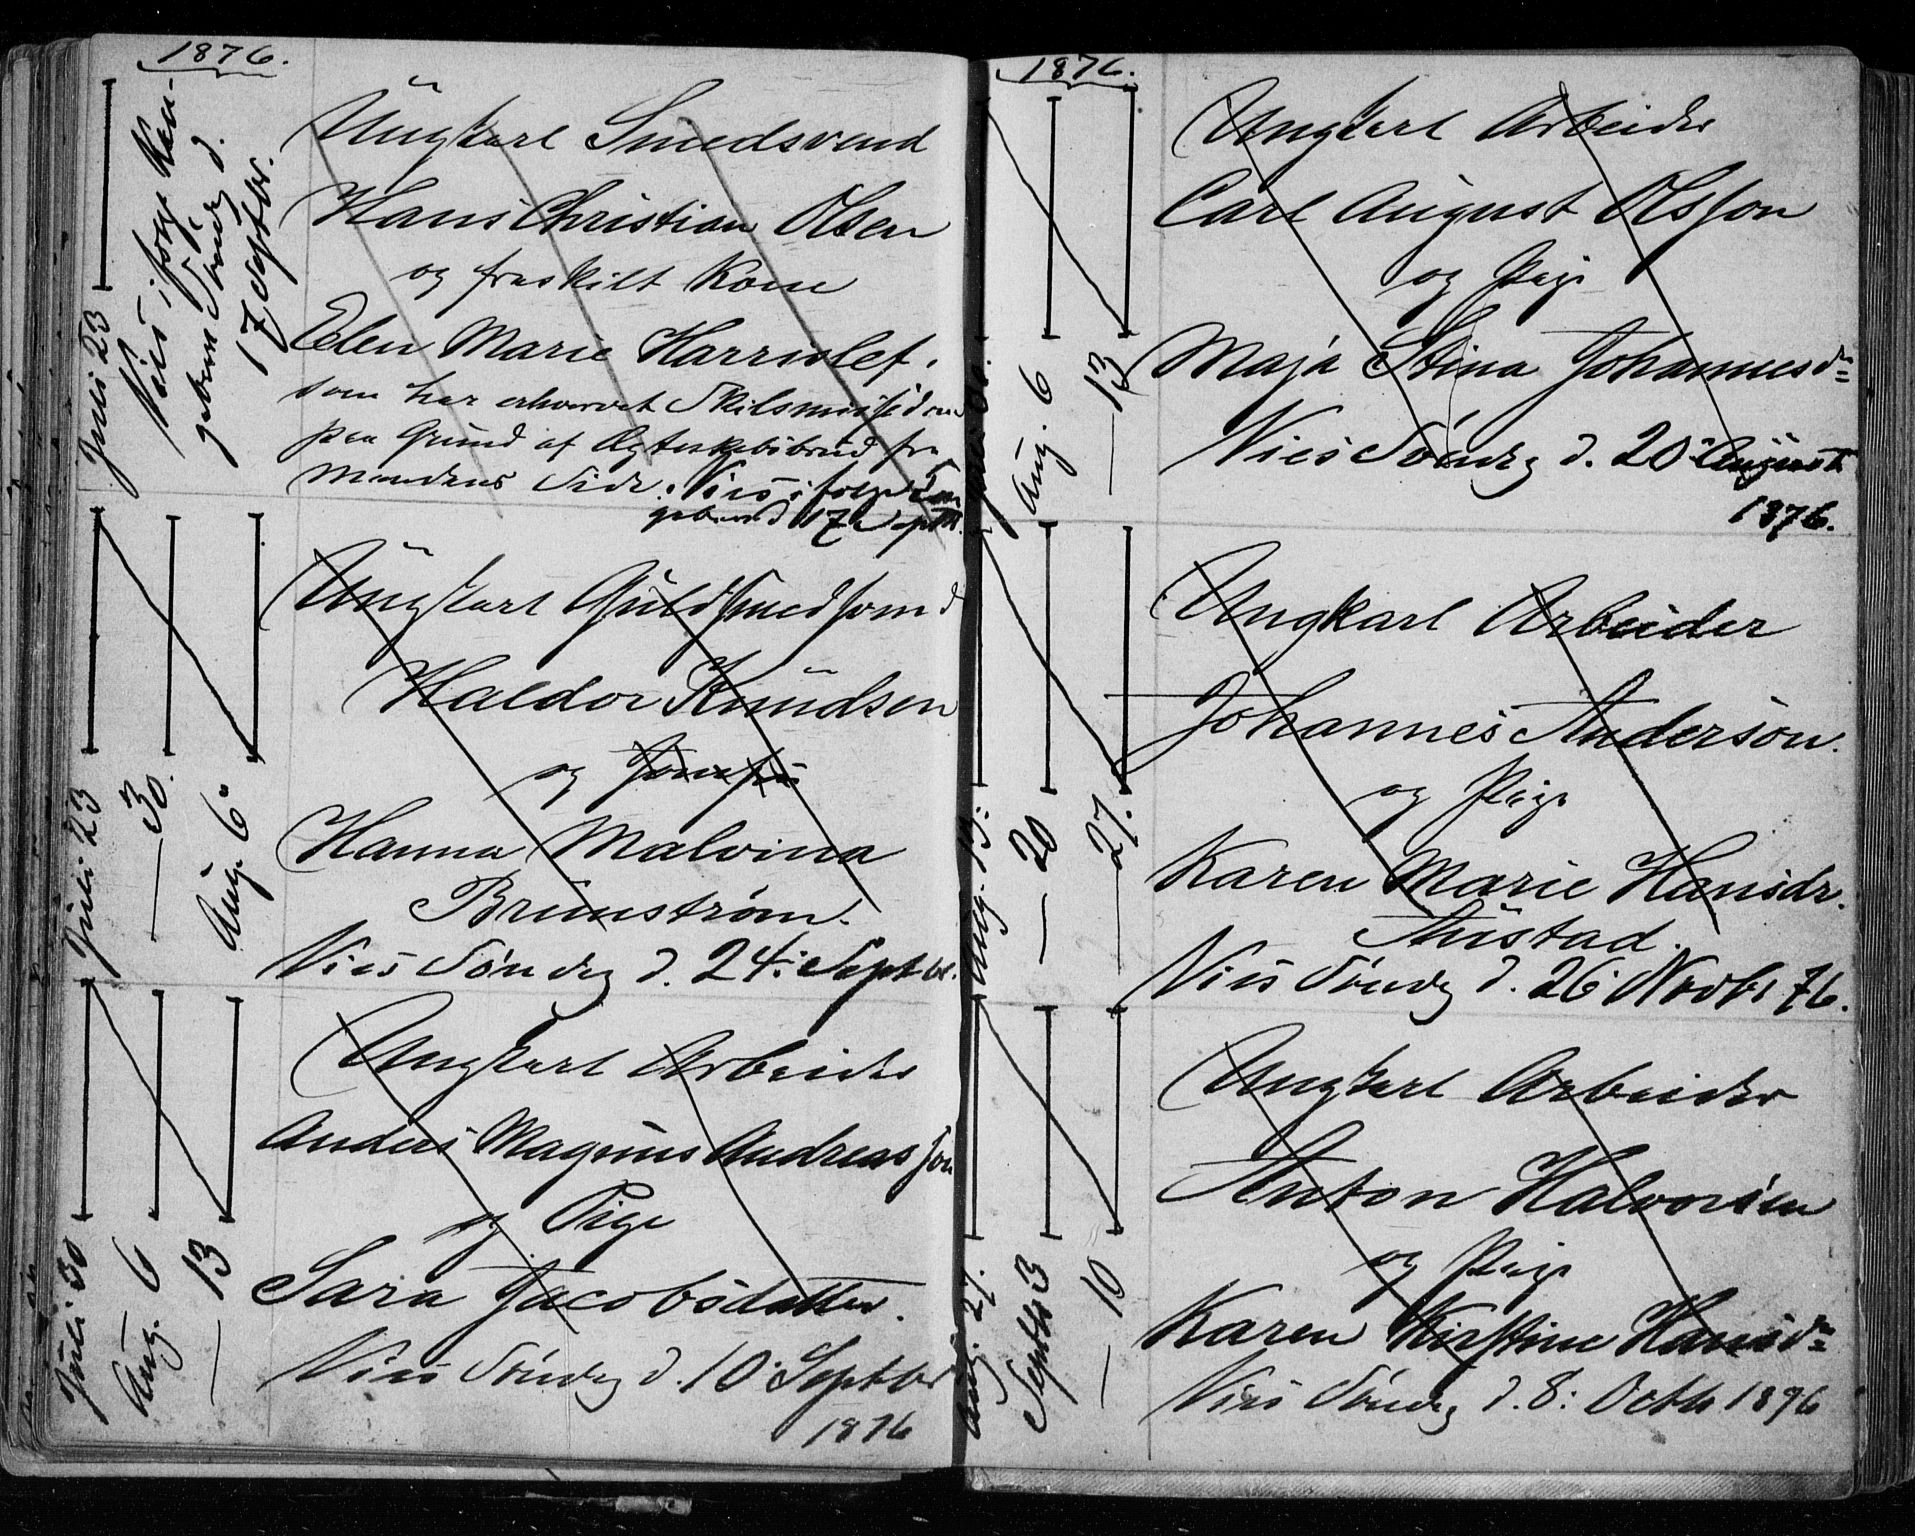 1876.
Juli 23
Vies ifølge
Søndg d.
17 Septbr.
Üngkarl Smedsvend
Hans Christian Olsen
og fraskilt Kone
Elen Marie Harrislef.
som har erhvervet Skilsmisse
paa Grund af Ægteskabsbrud fra
Mandens Side. Vies ifølge
17 Septbr.
Juli 23
— 30.
Aug. 6
Üngkarl Güldsmedsvend
Haldor Knüdsen
og
Hanna Malvina
Brünstrøm.
Vies Søndag d. 24: Septbr.
Juli 30
Aug. 6
— 13
Ungkarl Arbeider
Anders Magnus Andreasson
og Pige
Sara Jacobsdatter.
Vies Søndag d. 10: Septbr
1876
1876.
Aug. 6
— 13
Ungkarl Arbeider
Carl August Olsson
og Pige
Maja Stina Johannesdr
Vies Søndag d. 20: August
1876.
Aug. 13:
— 20
— 27.
Ungkarl Arbeider
Johannes Anderson.
og Pige
Karen Marie Hansdr.
Vies Søndag d. 26: Novbr 76.
Aug. 27.
Septbr 3
— 10
Ungkarl Arbeider
Anton Halvorsen
og Pige
Karen Kirstine Hansdr
Vies Søndag d. 8: Octbr 1876